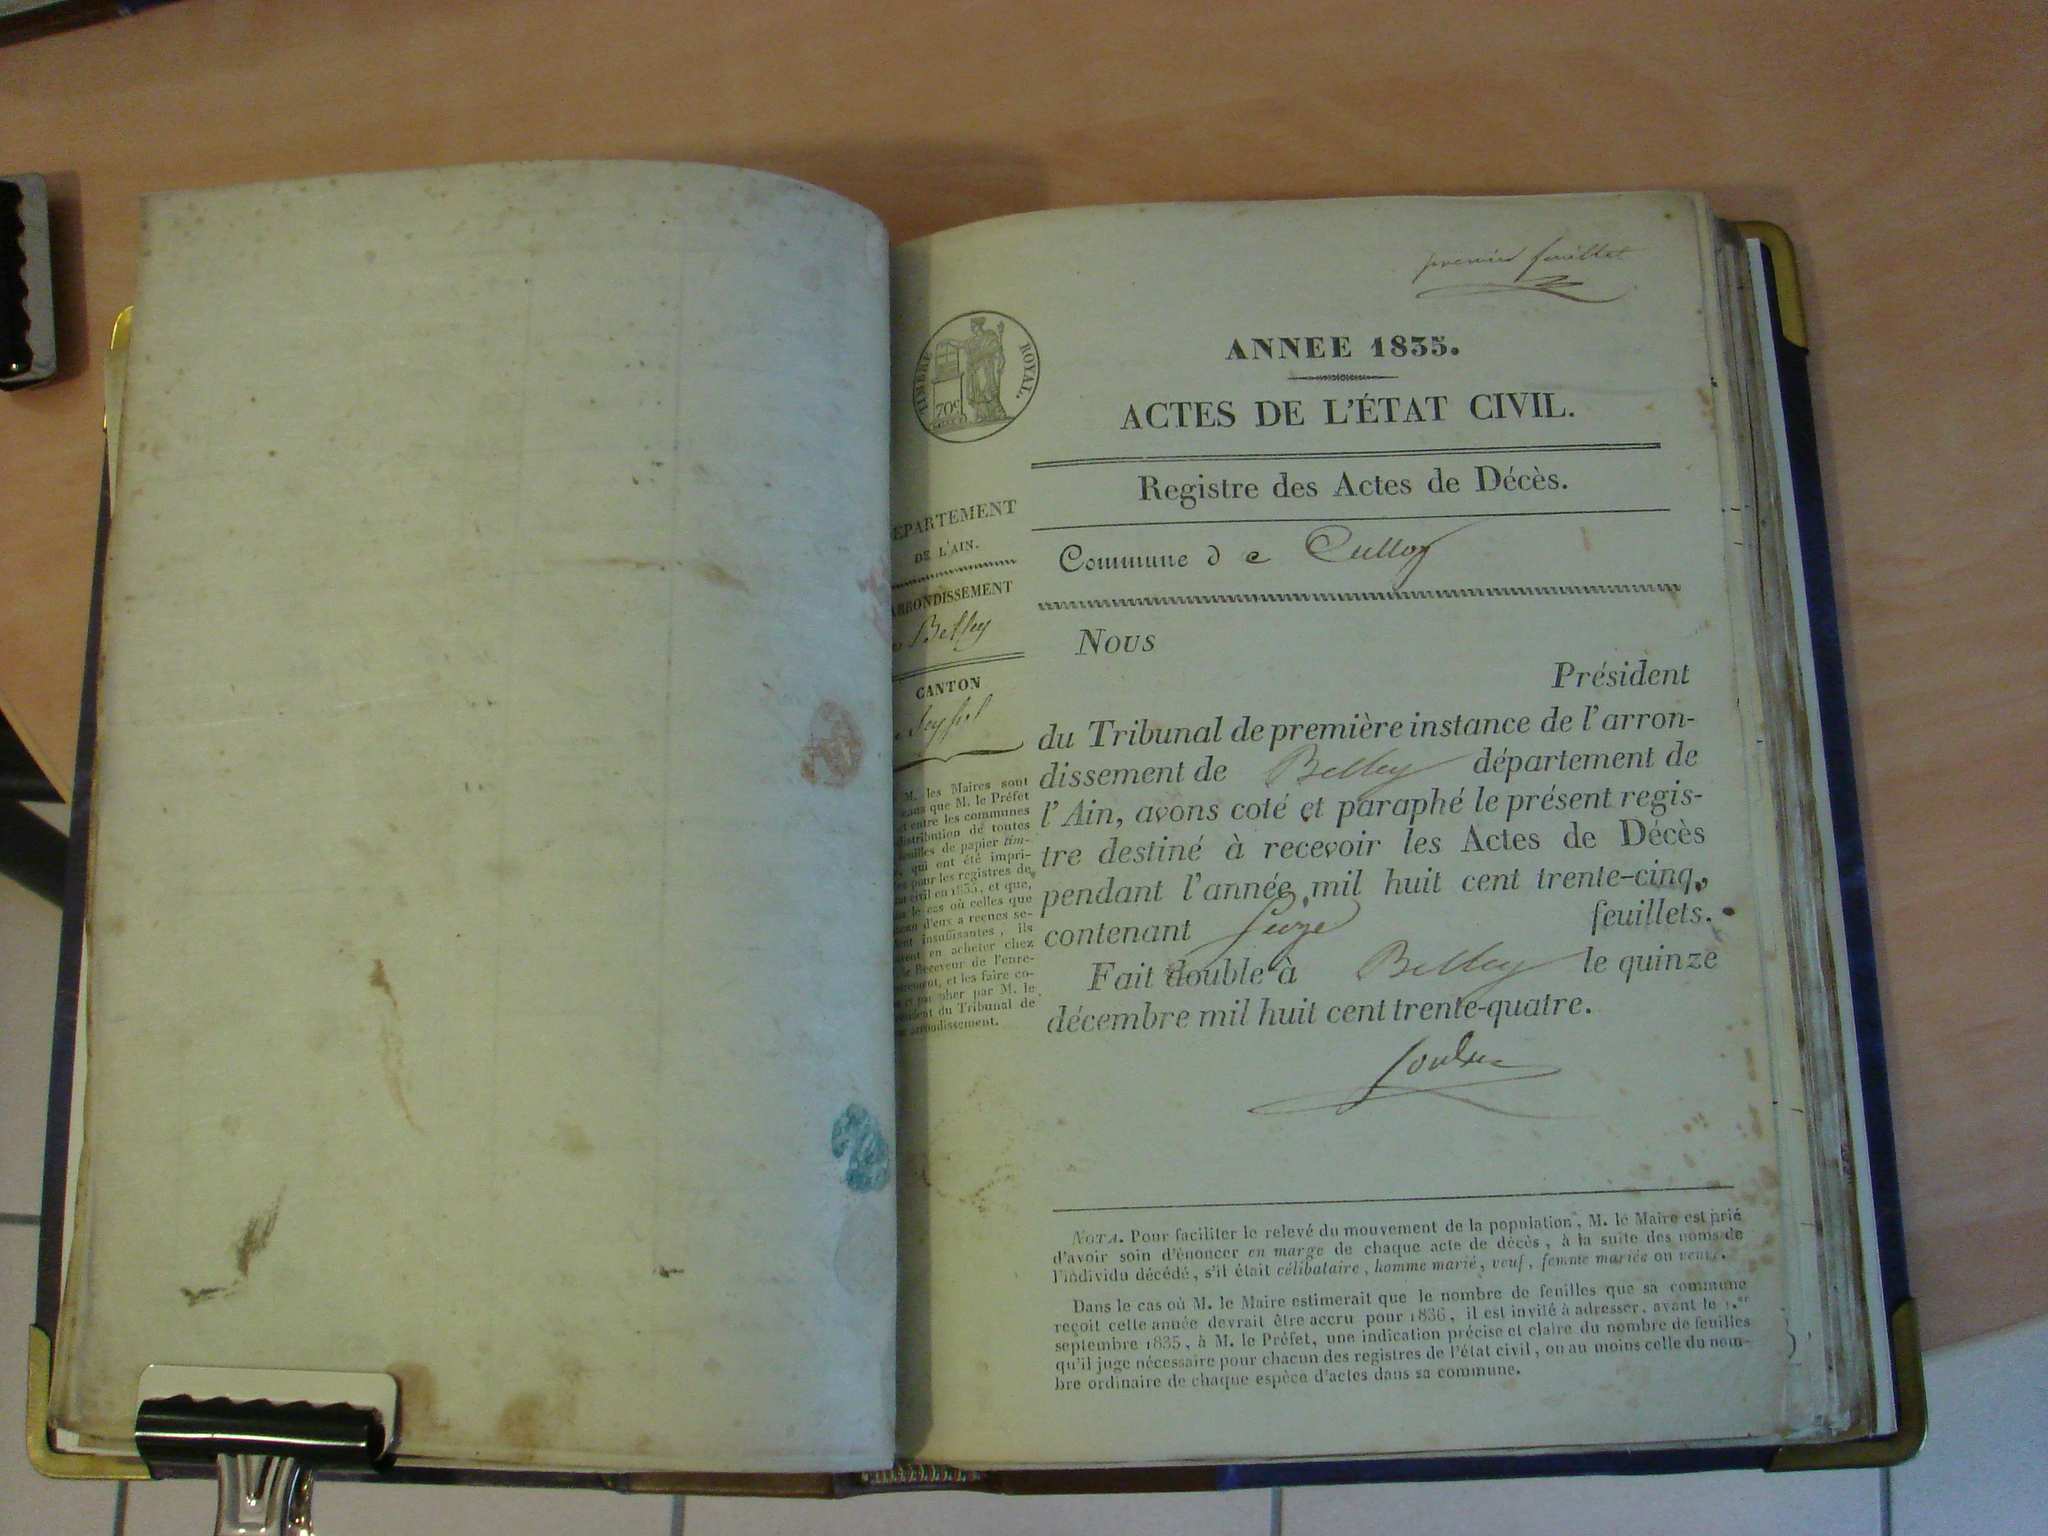 premier feuillet
TIMBRE ROYAL.
70c
ANNEE 1835.
ACTES DE L'ÉTAT CIVIL.
Registre des Actes de Décès.
EPARTEMENT
DE L'AIN.
Commune de Culloz
ARRONDISSEMENT
Belley
CANTON
Seyssel
M. les Maires sont
que M. le Préfet
entre les communes
distribution de toutes
feuilles de papier tim-
qui ont été impri-
pour les registres de
civil en 1835, et que,
le cas où celles que
d'eux a reçues se-
insuffisantes, ils
en acheter chez
Receveur de l'enre-
et les faire co-
parapher par M. le
du Tribunal de
arrondissement.
Nous
Président
du Tribunal de première instance de l'arron-
dissement de Belley département de
l'Ain, avons coté et paraphé le présent regis-
tre destiné à recevoir les Actes de Décès
pendant l'année mil huit cent trente-cinq,
contenant seize feuillets.
Fait double à Belley le quinze
décembre mil huit cent trente-quatre.
NOTA. Pour faciliter le relevé du mouvement de la population, M. le Maire est prié
d'avoir soin d'énoncer en marge de chaque acte de décès, à la suite des noms de
l'individu décédé, s'il était célibataire, homme marié, veuf, femme mariée ou veuve.
Dans le cas où M. le Maire estimerait que le nombre de feuilles que sa commune
reçoit cette année devrait être accru pour 1836, il est invité à adresser, avant le 1.er
septembre 1835, à M. le Préfet, une indication précise et claire du nombre de feuilles
qu'il juge nécessaire pour chacun des registres de l'état civil, ou au moins celle du nom-
bre ordinaire de chaque espèce d'actes dans sa commune.